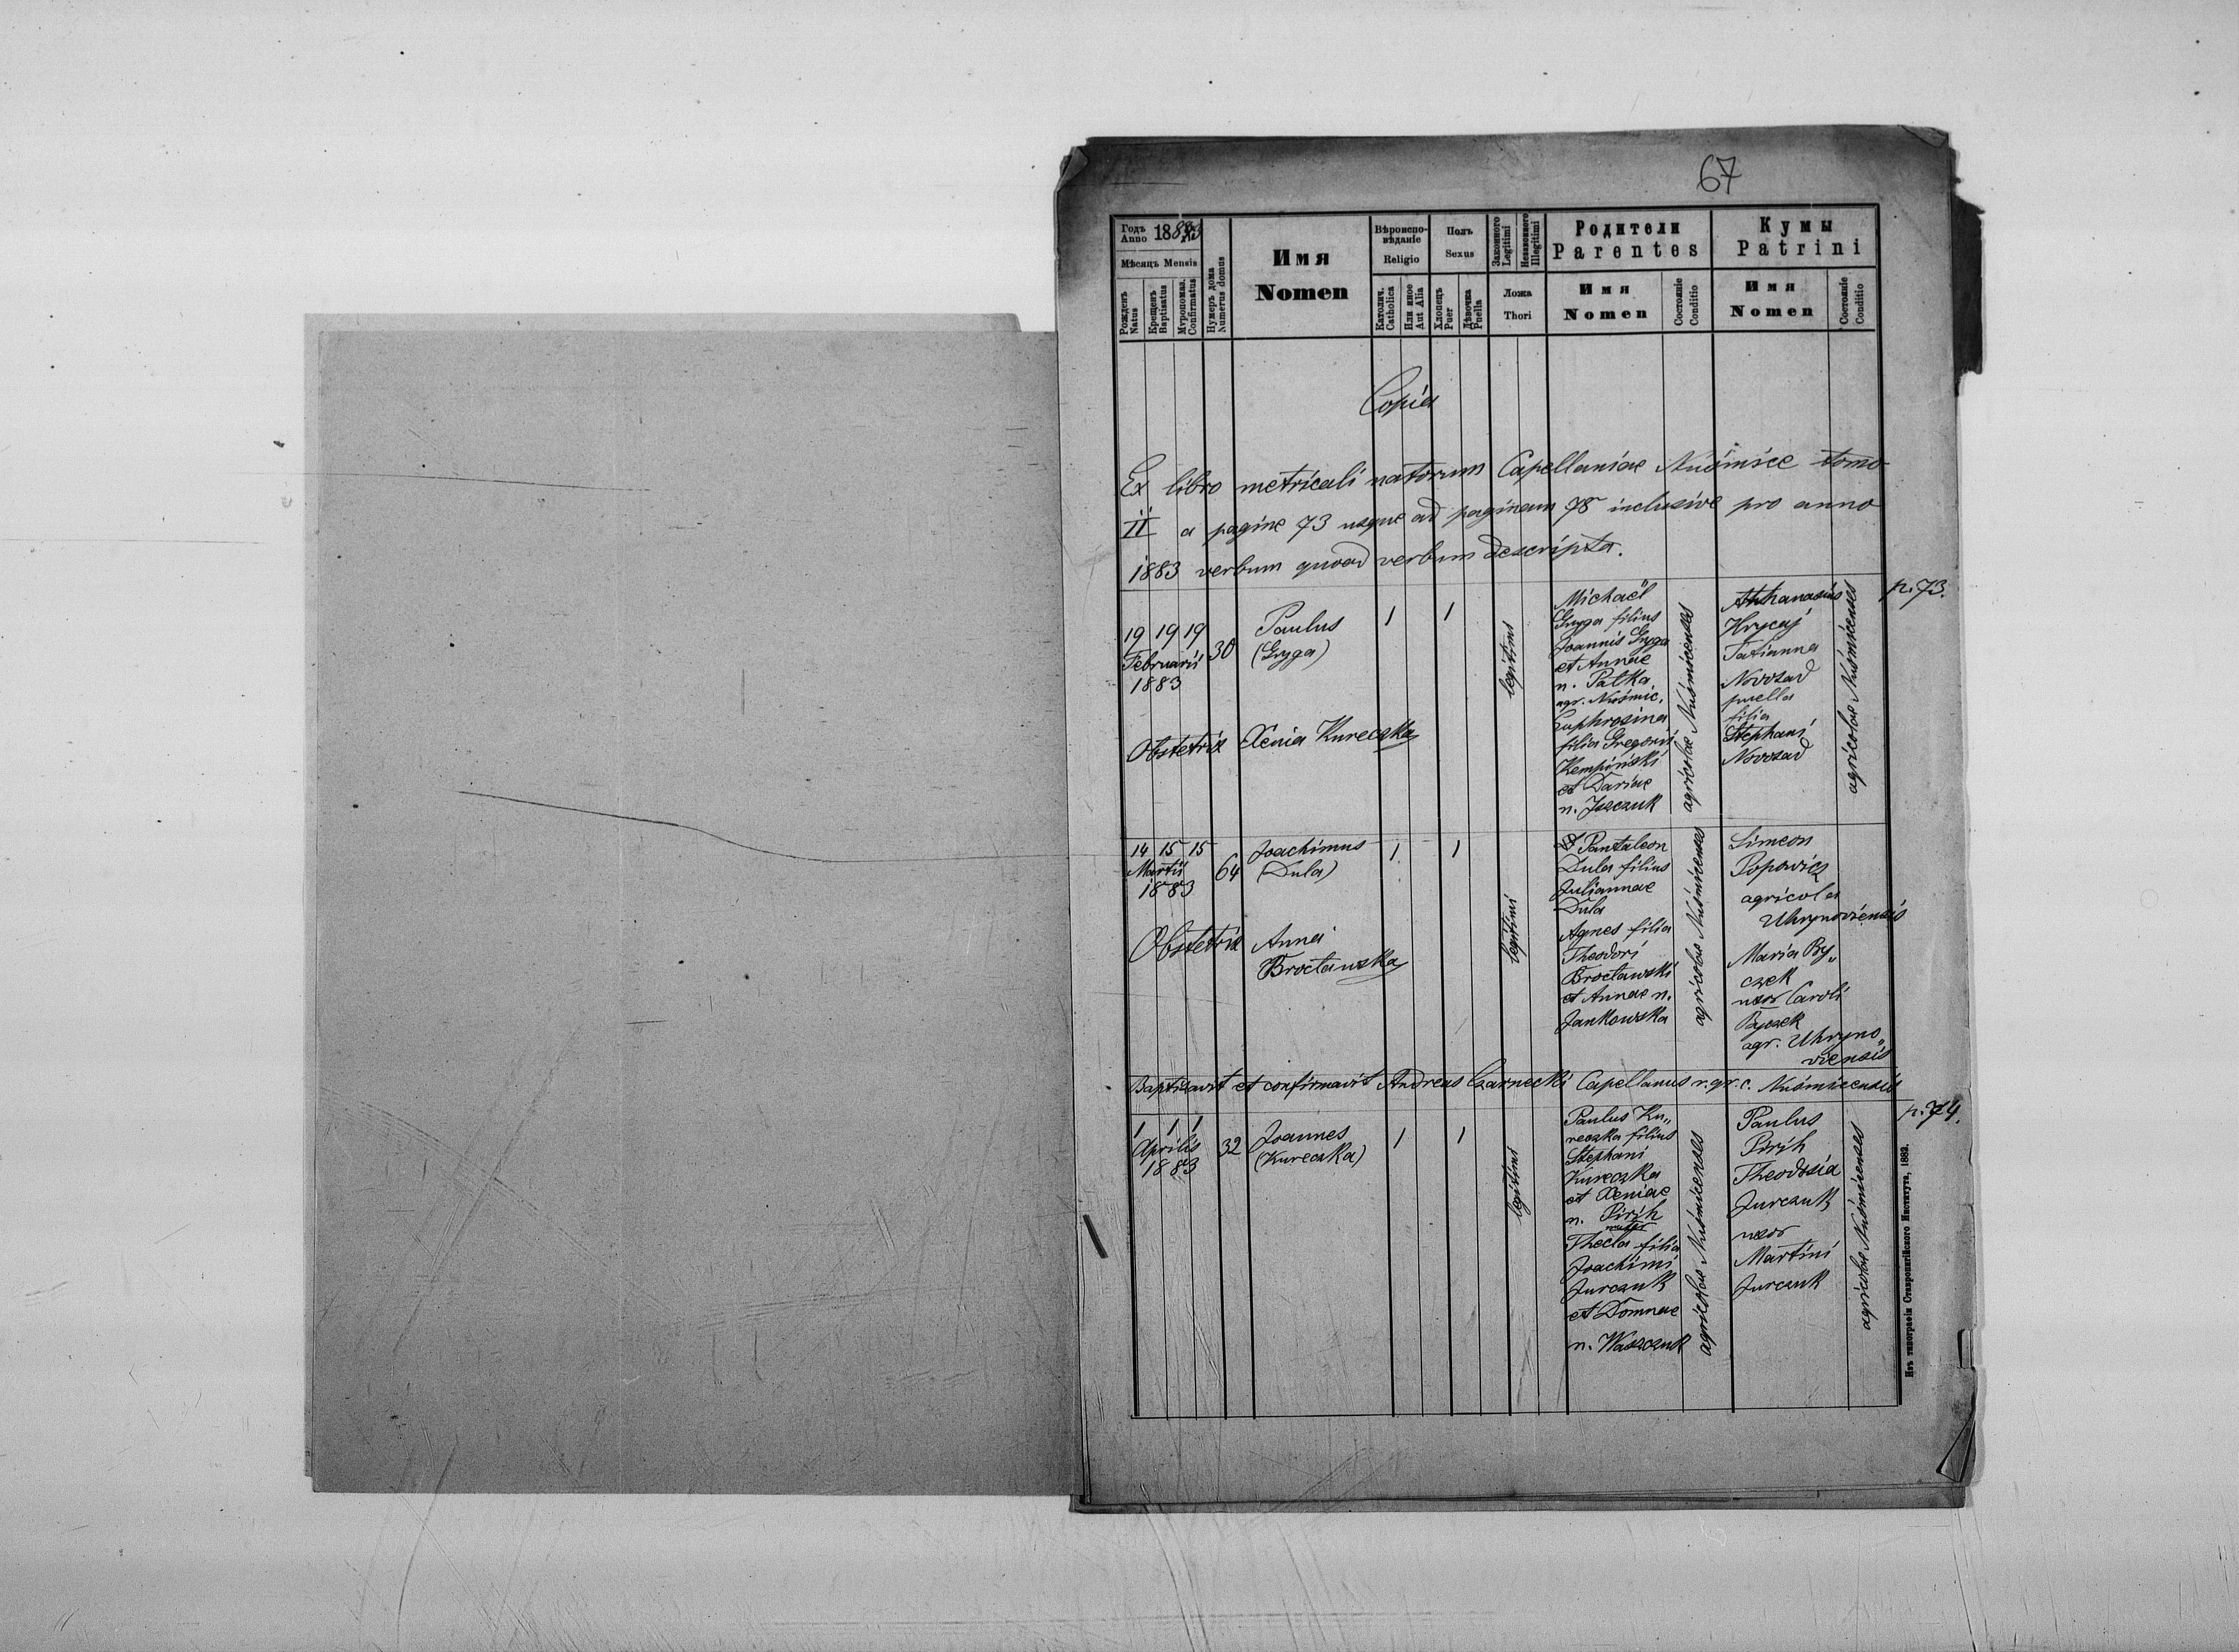 67
Годъ
Anno 1883
Мѣсяцъ Mensis
Рожденъ
Natus
Крещенъ
Baptisatus
Мѵропомаз.
Confirmatus
Нумеръ дома
Numerus domus
Имя
Nomen
Вѣроиспо-
вѣданіе
Religio
Католич.
Catholica
Или иное
Aut Alia
Полъ
Sexus
Хлопецъ
Puer
Дѣвочка
Puella
Законного
Legitimi
Незаконного
Illegitimi
Ложа
Thori
Родители
Parentes
Имя
Nomen
Состояніе
Conditio
Кумы
Patrini
Имя
Nomen
Состояніе
Conditio
Copia
Ex libro metricali natorum Capellaniae Nuśmice tomo
II a pagine 73 usque ad paginam 78 inclusive pro anno
1883 verbum quoad verbum descripta.
p. 73.
19 19 19
Februarii
1883
30
Paulus
(Gryga)
1
1
legitimi
Michaël
Gryga filius
Joannis Gryga
et Annae
n. Patka
agr. Nuśmic.
Euphrosina
filia Gregorii
Kempiński
et Dariae
n. Jszczuk
agricolae Nuśmicenses
Athanasius
Hrycaj
Tatianna
Novosad
puella
filia
Stephani
Novosad
agricolae Nuśmicenses
Obstetrix Xenia Kureczka
14 15 15
Martii
1883
64
Joachimus
(Dula)
1
1
legitimi
Pantaleon
Dula filius
Juliannae
Dula
Agnes filia
Theodori
Brocławski
et Annae n.
Jankowska
agricolae Nuśmicenses
Simeon
Popowicz
agricola
Uhrynoviensis
Maria By„
czek
uxor Caroli
Byczek
agr. Uhryno„
viensis
Obstetrix Anna
Brocławska
Baptisavit et confirmavit Andreas Czarnecki Capellanus r. gr. c. Nuśmicensis
p. 74.
1 1 1
Aprilis
1883
32
Joannes
(Kureczka)
1
1
legitimi
Paulus Ku„
reczka filius
Stephani
Kureczka
et Xeniae
n. Pirih
Thecla filia
Joachimi
Jurczuk
et Domnae
n. Waszczuk
agricolae Nuśmicenses
Paulus
Pirih
Theodosia
Jurczuk
uxor
Martini
Jurczuk
agricolae Nuśmicenses
Изъ типографіи Ставропигійского Института, 1882.